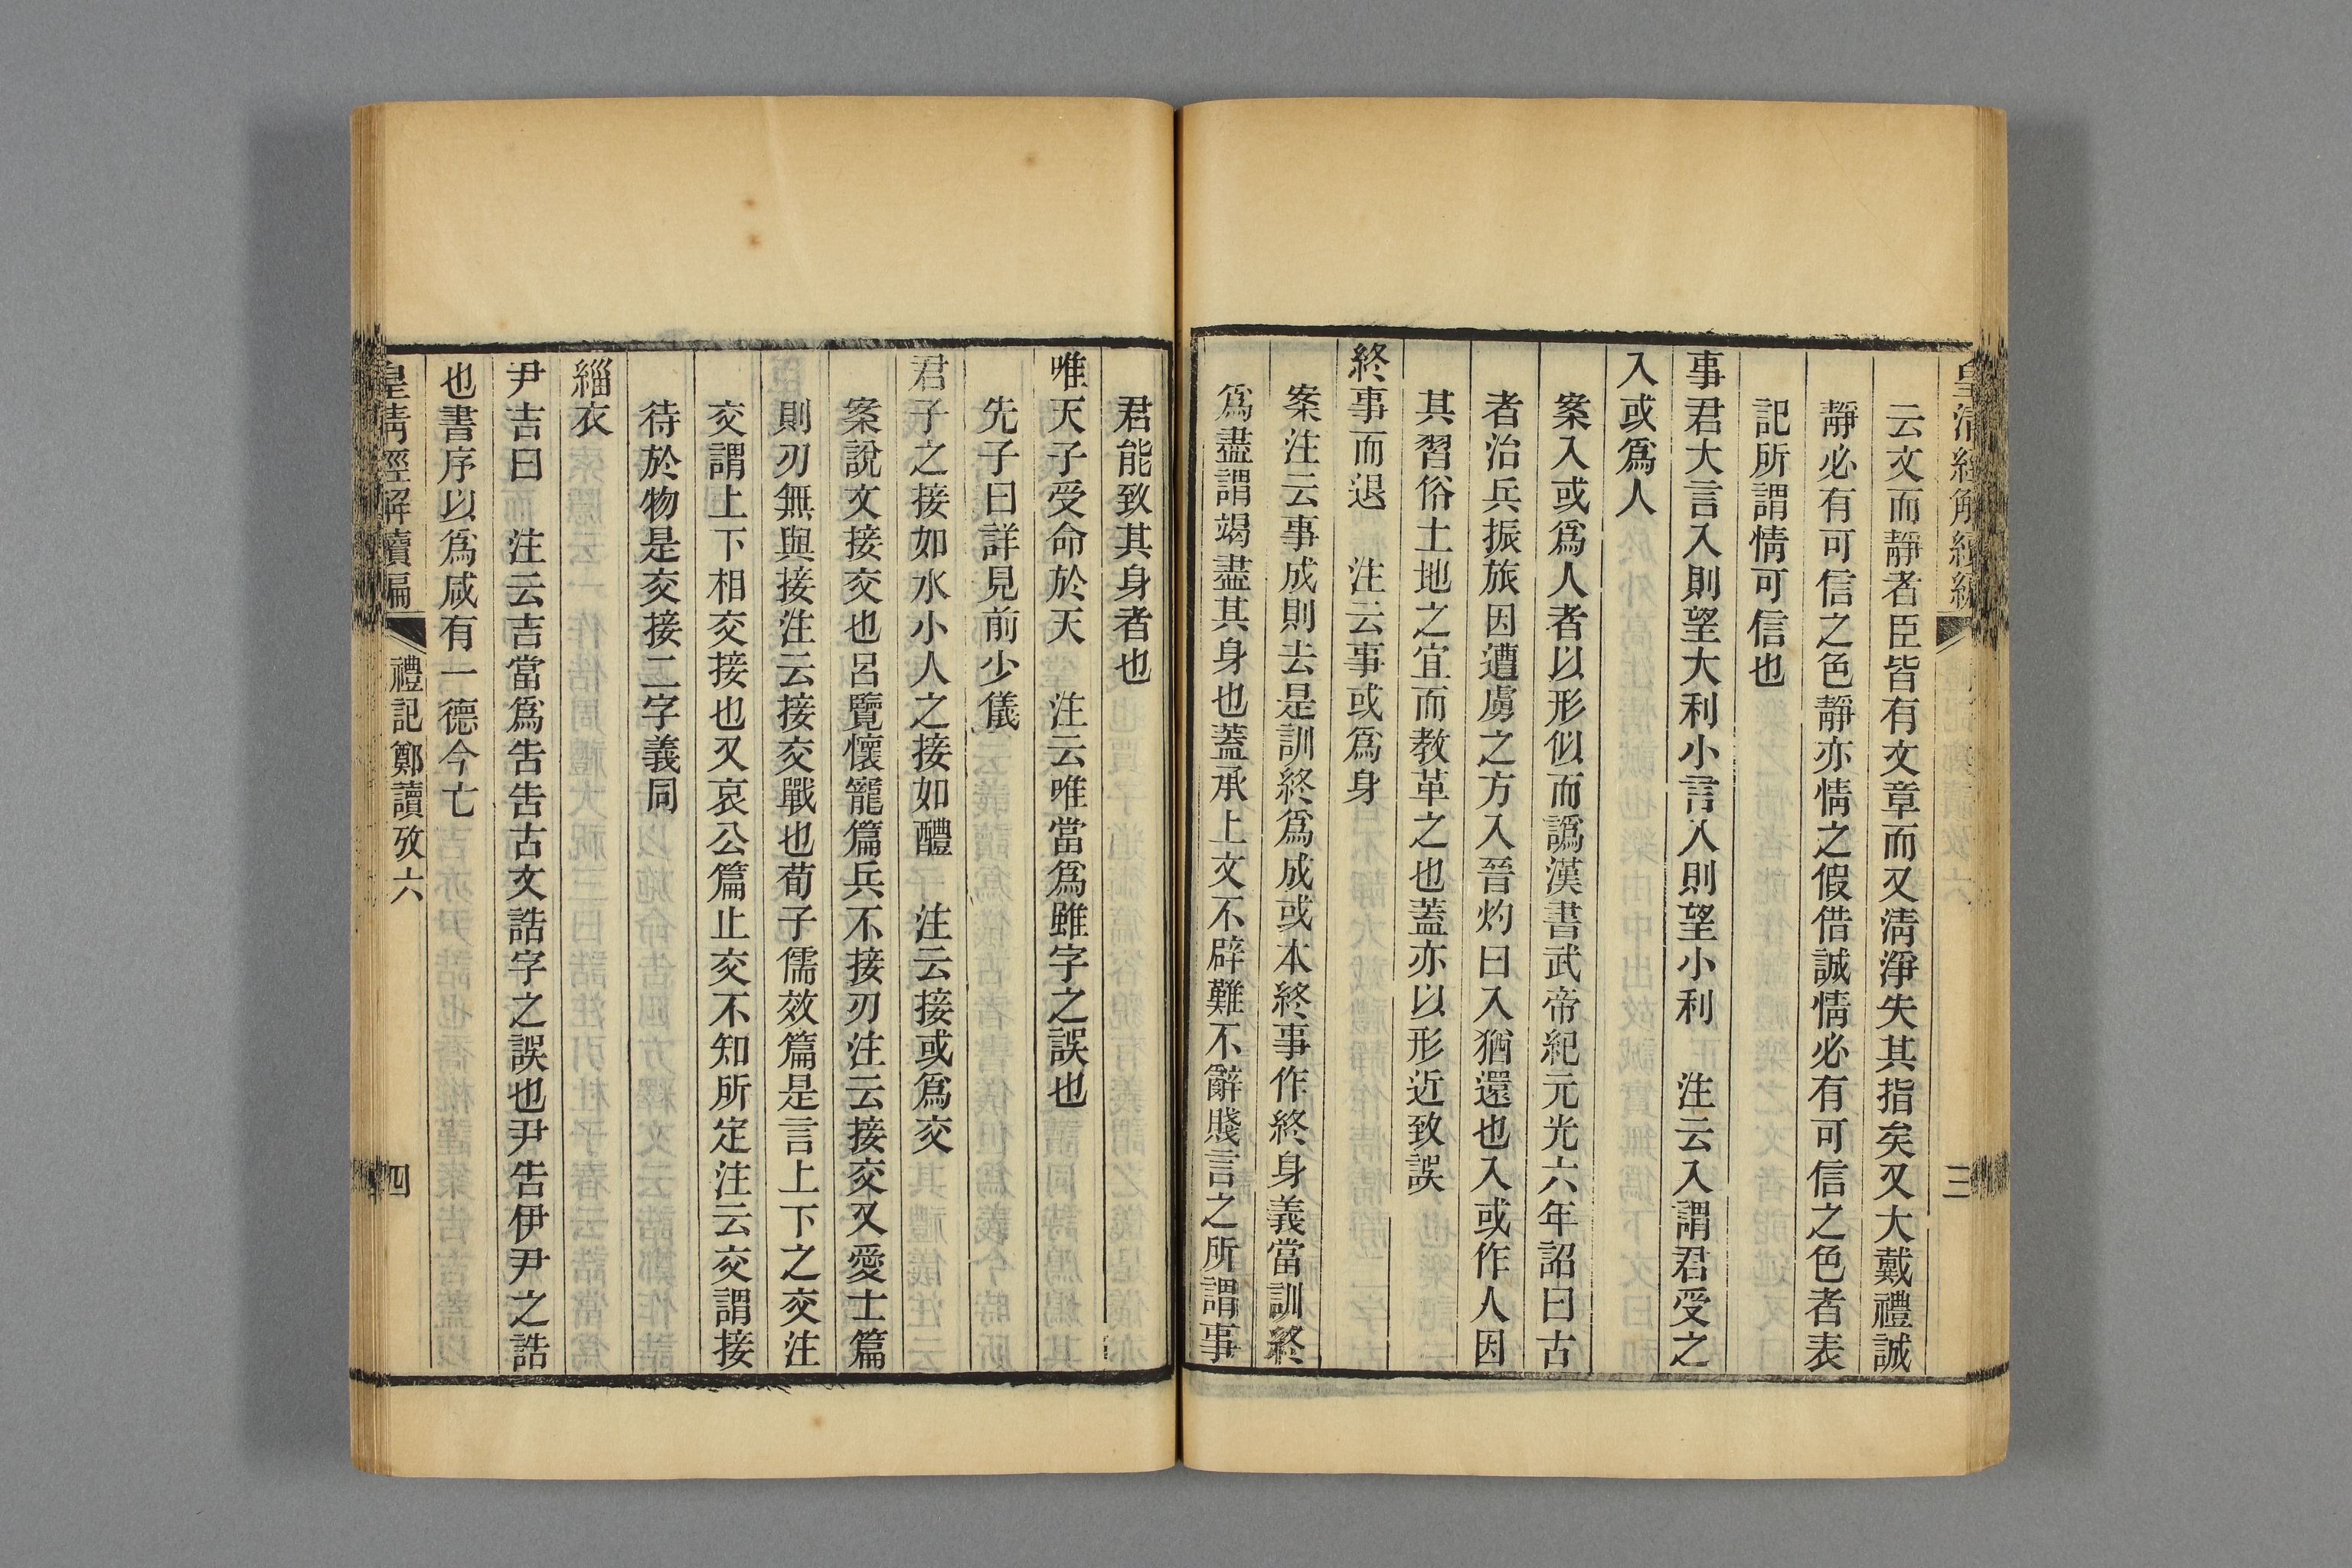 皇清經解續編
三
云文而靜者臣皆有文章而又清淨失其指矣又大戴禮誠
靜必有可信之色靜亦情之假借誠情必有可信之色者表
記所謂情可信也
事君大言入則望大利小言入則望小利　注云入謂君受之
入或爲人
案入或爲人者以形似而譌漢書武帝紀元光六年詔曰古
者治兵振旅因遭虜之方入晉灼曰入猶還也入或作人因
其習俗土地之宜而教革之也蓋亦以形近致誤
終事而退　注云事或爲身
案注云事成則去是訓終爲成或本終事作終身義當訓終
爲盡謂竭盡其身也蓋承上文不辟難不辭賤言之所謂事
君能致其身者也
唯天子受命於天　注云唯當爲雖字之誤也
先子曰詳見前少儀
君子之接如水小人之接如醴　注云接或爲交
案說文接交也呂覽懷寵篇兵不接刃注云接交又愛士篇
則刃無與接注云接交戰也荀子儒效篇是言上下之交注
交謂上下相交接也又哀公篇止交不知所定注云交謂接
待於物是交接二字義同
緇衣
尹吉曰　注云吉當爲告告古文誥字之誤也尹告伊尹之誥
也書序以爲咸有一德今亡
皇清經解續編
禮記鄭讀攷六
四